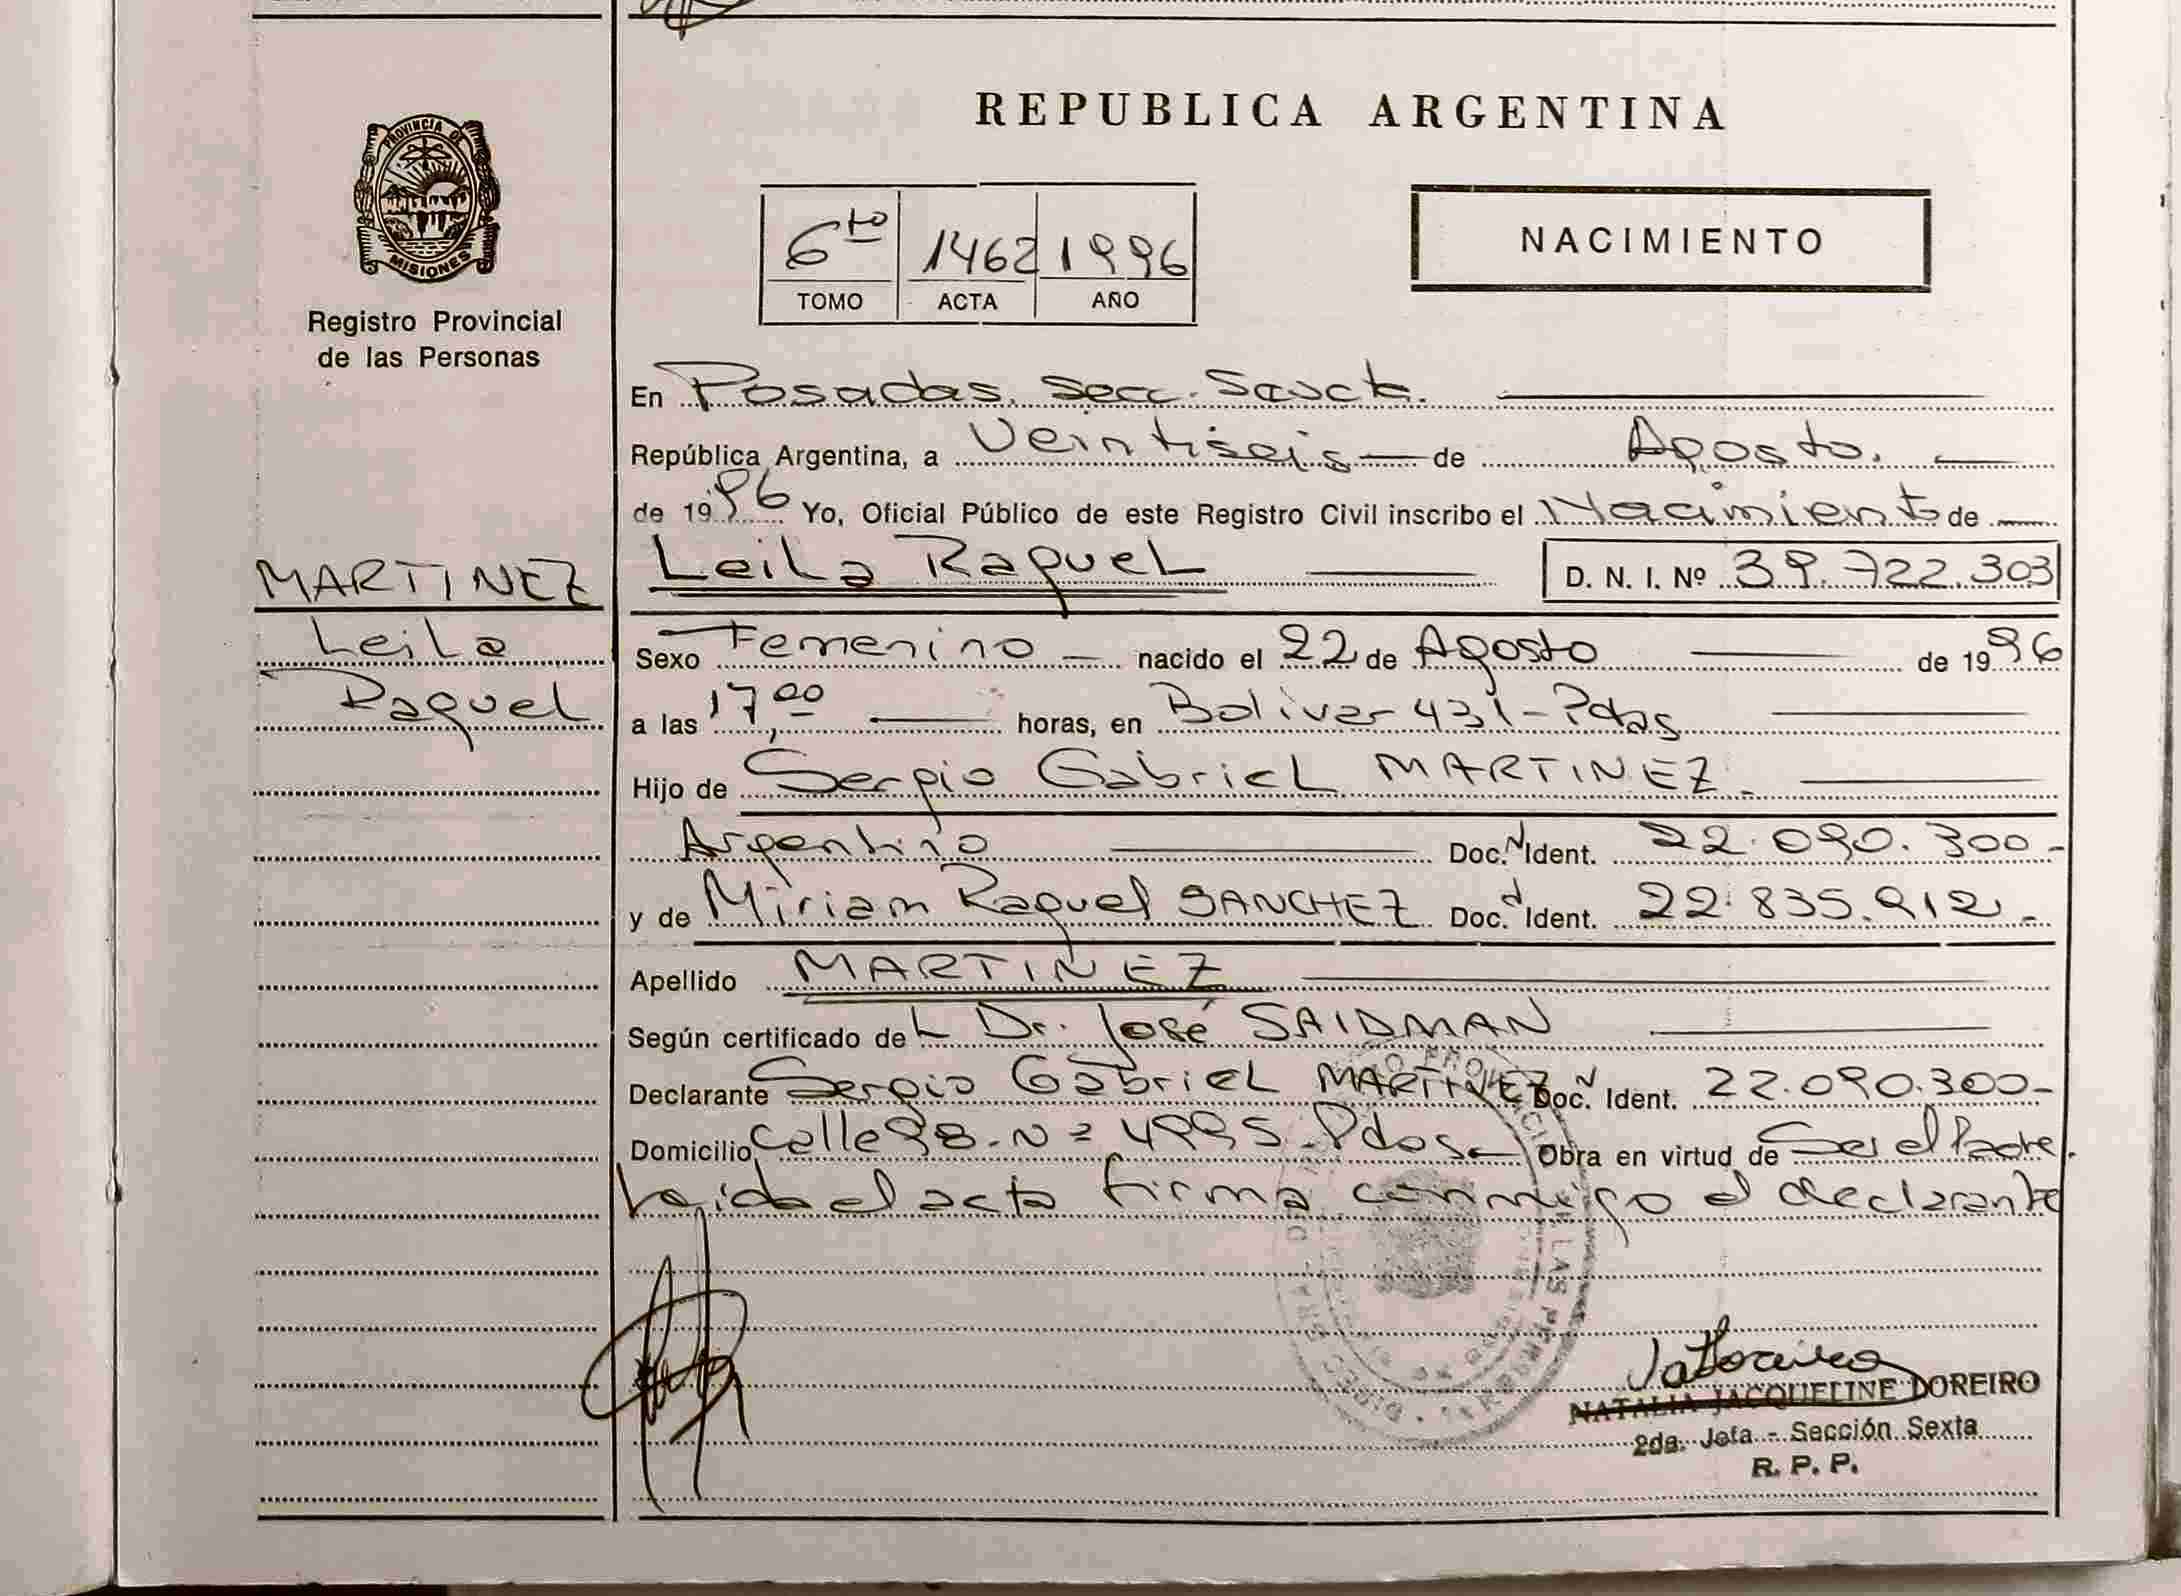 PROVINCIA DE
MISIONES
Registro Provincial
de las Personas
MARTINEZ
Leila
Raquel
REPUBLICA ARGENTINA
6to 1462 1996
TOMO ACTA AÑO
NACIMIENTO
En Posadas. Secc. Sexta.
República Argentina, a Veintiseis de Agosto.
de 1996 Yo, Oficial Público de este Registro Civil inscribo el Nacimiento de
Leila Raquel D. N. I. Nº 39.722.303
Sexo Femenino nacido el 22 de Agosto de 1996
a las 17,00 horas, en Bolivar 431-Pdas
Hijo de Sergio Gabriel MARTINEZ.
Argentino Doc. N Ident. 22.090.300-
y de Miriam Raquel SANCHEZ Doc. Ident. 22.835.912.-
Apellido MARTINEZ
Según certificado deL Dr. José SAIDMAN
Declarante Sergio Gabriel MARTINEZ Doc. N Ident. 22.090.300-
Domicilio Calle 98. Nº 4995. Pdas Obra en virtud de Ser el Padre.
Leida el acta firma conmigo el declarante
NATALIA JACQUELINE DOREIRO
2da. Jefa - Sección Sexta
R. P. P.